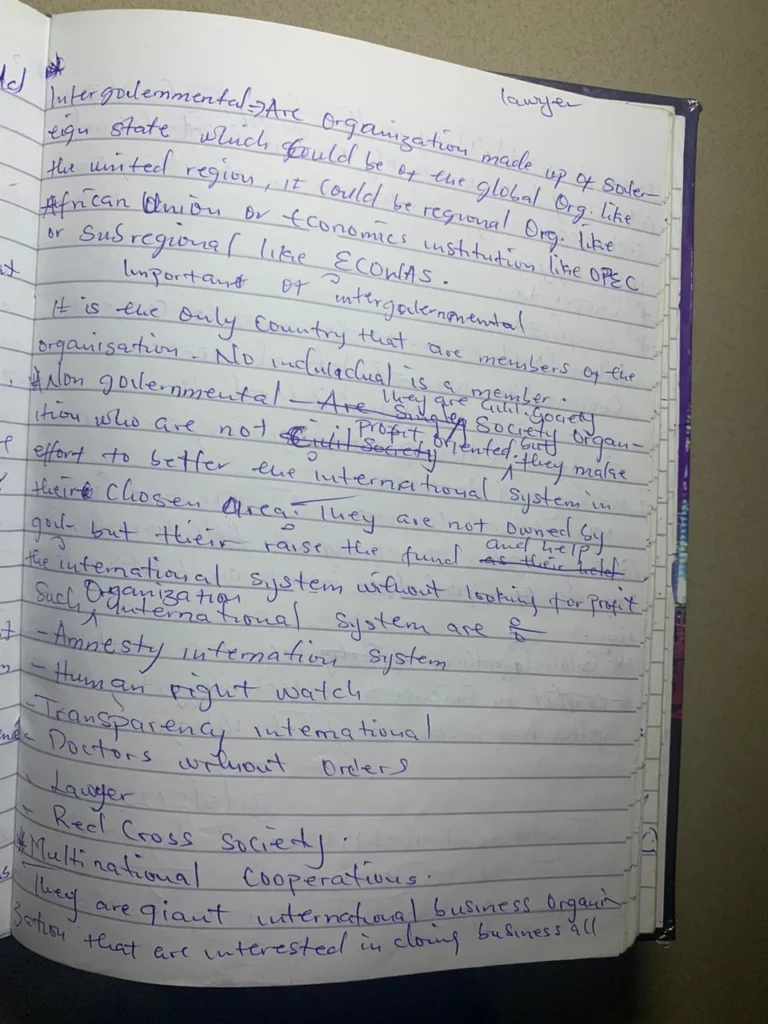 lawyer
Intergovernmental => Are Organization made up of Sover-
eign state which could be of the global Org. like
the united region, it could be regional Org. like
African Union or Economics institution like OPEC
or Subregional like ECOWAS.
Important of intergovernmental
It is the only Country that are members of the
organisation. No induladual is a member.
* Non governmental - Are Single they are civil Society
Society Organ-
ition who are not Civil Society profit oriented but they make
effort to better the international system in
their chosen area. They are not owned by
gov. but their raise the fund as their held and help
the international system without looking for profit
Such Organization international system are
- Amnesty internation system
- Human right watch
- Transparency international
- Doctors without orders
- Lawyer
- Red Cross Society.
* Multinational Cooperations.
They are giant international business Organi-
zation that are interested in doing business all